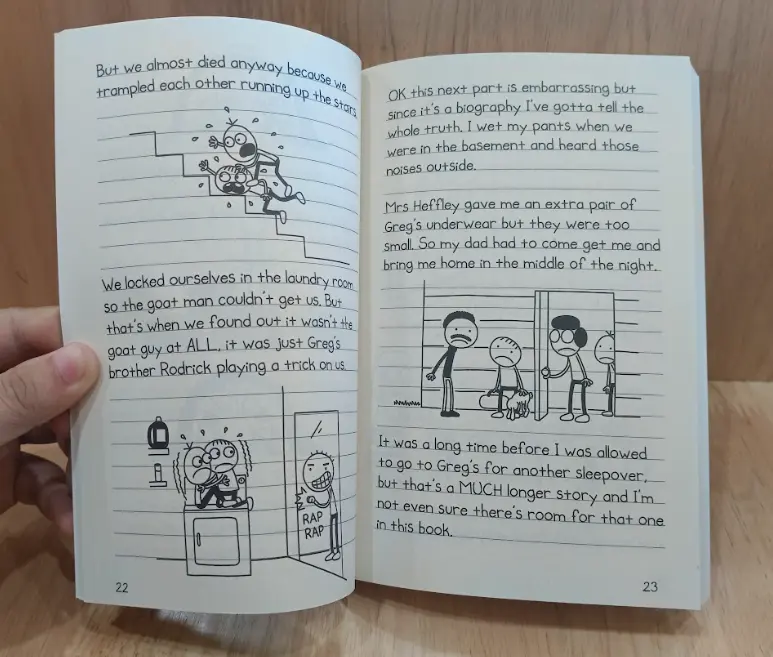 But we almost died anyway because we
trampled each other running up the stairs.
We locked ourselves in the laundry room
so the goat man couldn't get us. But
that's when we found out it wasn't the
goat guy at ALL, it was just Greg's
brother Rodrick playing a trick on us.
RAP
RAP
22
OK this next part is embarrassing but
since it's a biography I've gotta tell the
whole truth. I wet my pants when we
were in the basement and heard those
noises outside.
Mrs Heffley gave me an extra pair of
Greg's underwear but they were too
small. So my dad had to come get me and
bring me home in the middle of the night.
It was a long time before I was allowed
to go to Greg's for another sleepover,
but that's a MUCH longer story and I'm
not even sure there's room for that one
in this book.
23